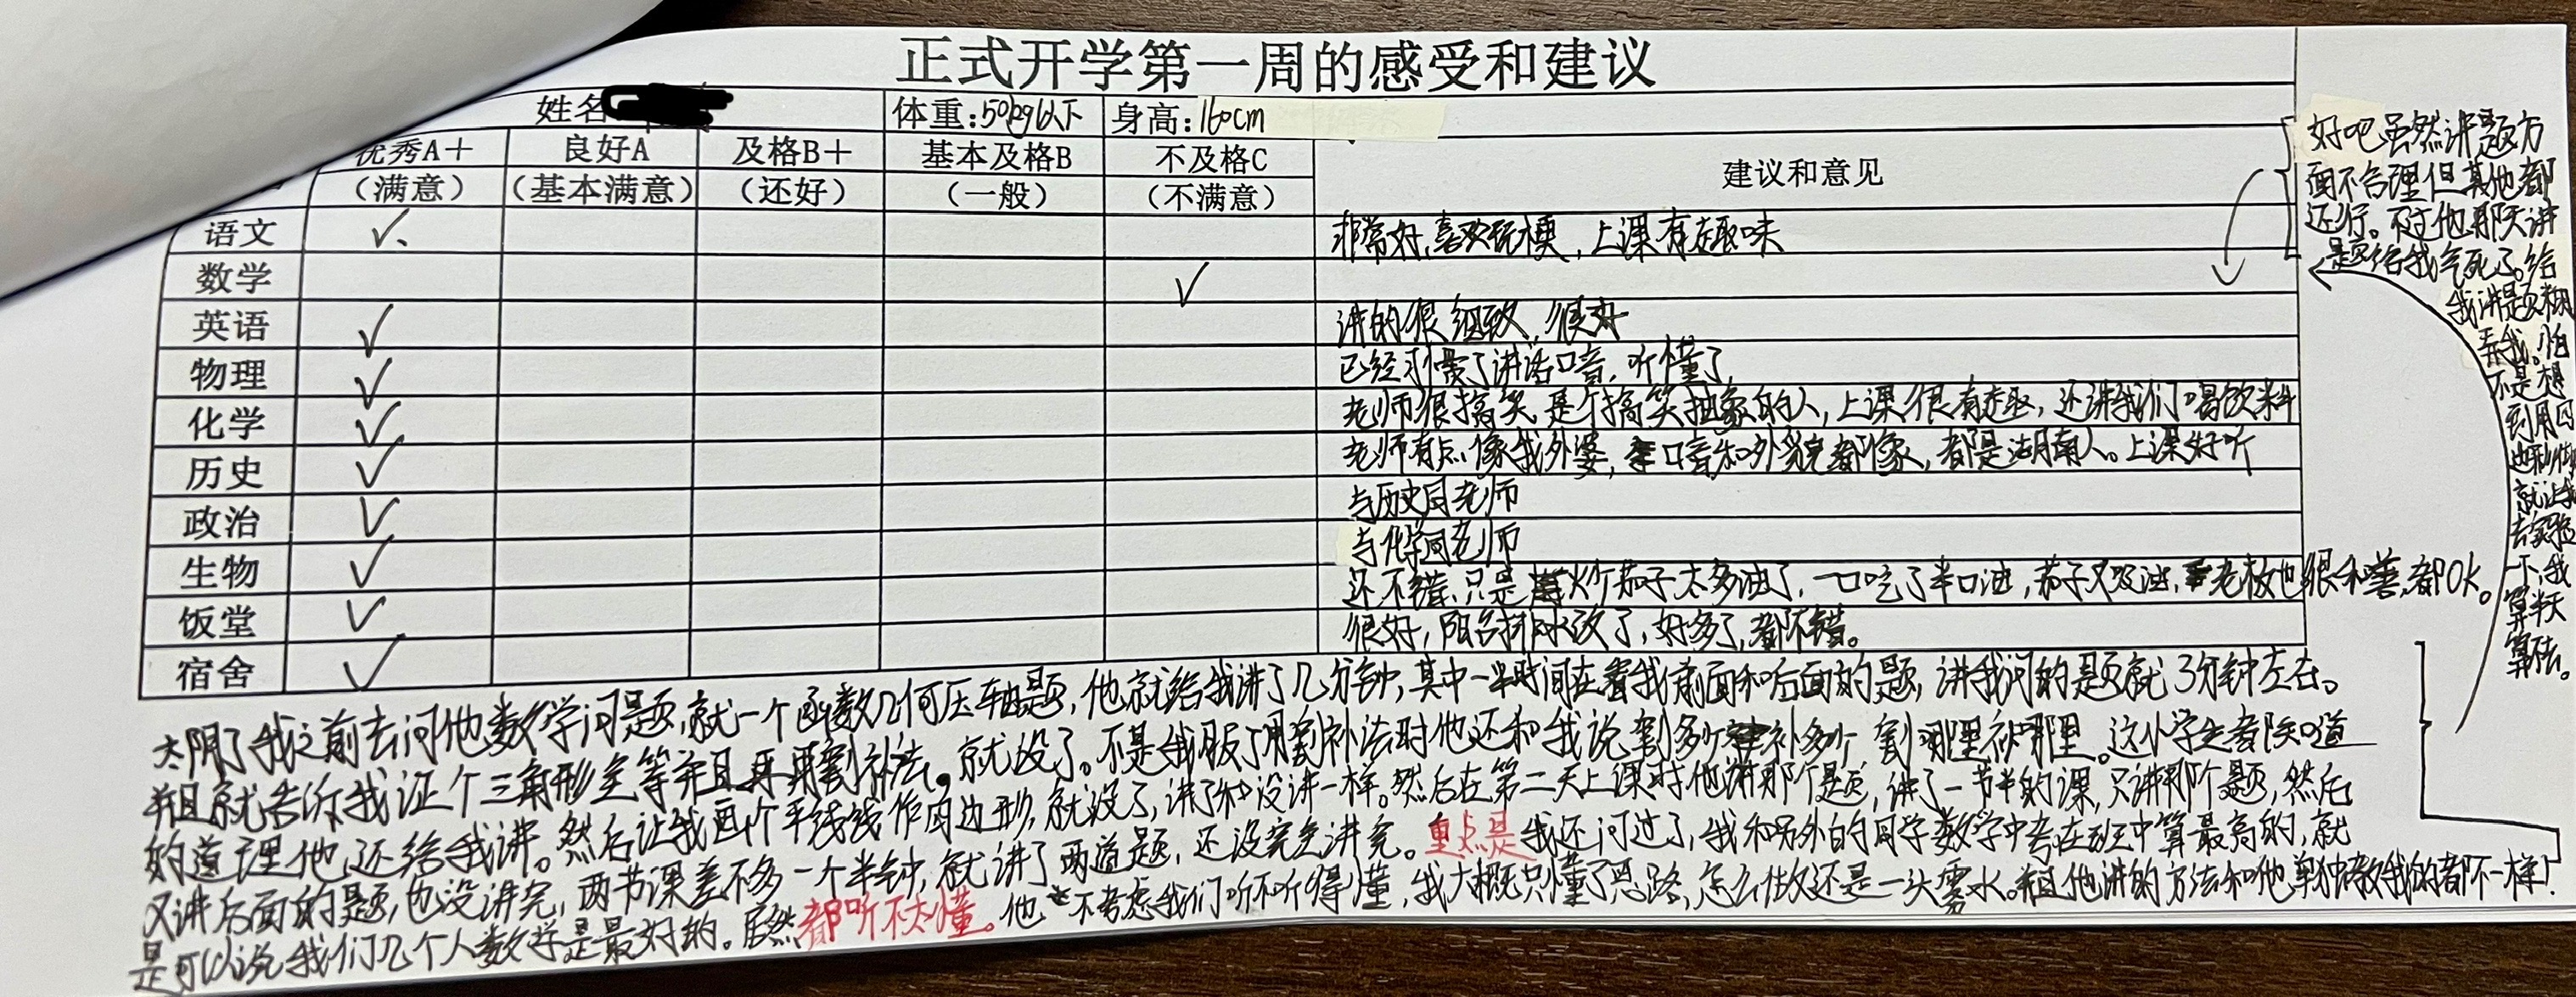 正式开学第一周的感受和建议
姓名 体重:50kg以下 身高:160cm
优秀A+ 良好A 及格B+ 基本及格B 不及格C 建议和意见
（满意） （基本满意） （还好） （一般） （不满意）
语文 ✓ 非常好,喜欢玩梗,上课有趣味
数学 ✓
英语 ✓ 讲的很细致,很好
物理 ✓ 已经习惯了讲话口音,听懂了
化学 ✓ 老师很搞笑,是个搞笑抽象的人,上课很有趣,还请我们喝饮料
历史 ✓ 老师有点像我外婆,口音和外貌都像,都是湖南人。上课好听
政治 ✓ 与历史同老师
生物 ✓ 与化学同老师
饭堂 ✓ 还不错,只是火炉茄子太多油了,一口吃了半口油,茄子又吸油,老板也很和善,都OK。
宿舍 ✓ 很好,阳台排水改了,好多了,都不错。
好吧虽然讲题方
面不合理但其他都
还行。不过他那天讲
题给我气死了。给
我讲题糊
弄我。怕
不是想
到用四
边形
就让我
去实验
一下,我
算半天
算法。
太阴了我之前去问他数学问题,就一个函数几何压轴题,他就给我讲了几分钟,其中一半时间在看我前面和后面的题,讲我问的题就3分钟左右。
并且就告诉我证个三角形全等并且再用割补法。就没了。不是我服了用割补法时他还和我说割多少补多少 割哪里补哪里。这小学生都知道
的道理他还给我讲。然后让我画个平行线作四边形,就没了,讲了和没讲一样。然后在第二天上课时他讲那个题,讲了一节半的课,只讲那个题,然后
又讲后面的题,也没讲完,两节课差不多一个半钟,就讲了两道题,还没完全讲完。重点是我还问过了,我和另外的同学数学中考在班中算最高的,就
是可以说我们几个人数学是最好的。居然都听不太懂。他不考虑我们听不听得懂,我大概只懂了思路,怎么做还是一头雾水。并且他讲的方法和他单独教我的都不一样!